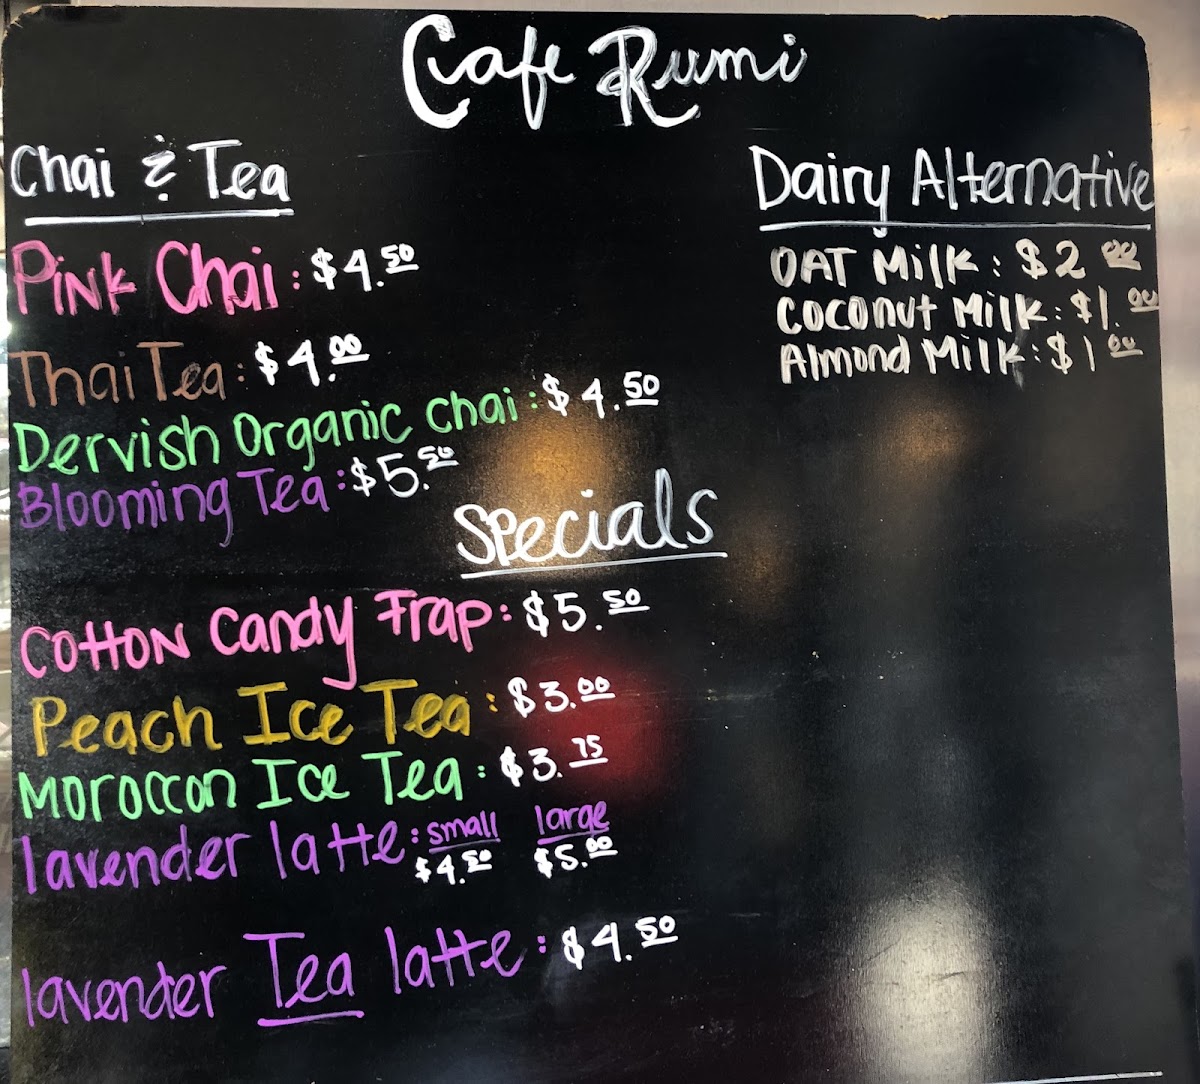 Cafe Rumi
Chai & Tea
Pink Chai: $4.50
Thai Tea: $4.00
Dervish Organic Chai: $4.50
Blooming Tea: $5.50
Dairy Alternative
OAT Milk: $2.00
Coconut Milk: $1.00
Almond Milk: $1.00
Specials
Cotton Candy Frap: $5.50
Peach Ice Tea: $3.00
Moroccan Ice Tea: $3.75
lavender latte: small large
$4.50 $5.00
lavender Tea latte: $4.50